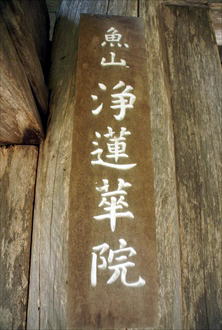 魚山浄蓮華院